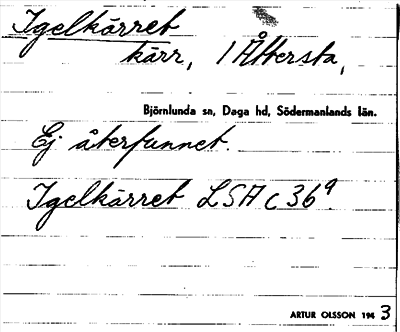 Igelkärret
kärr, / Åttersta,
Björnlunda sn, Daga hd, Södermanlands län.
Ej återfunnet.
Igelkärret LSA C 36 9.
ARTUR OLSSON 194 3